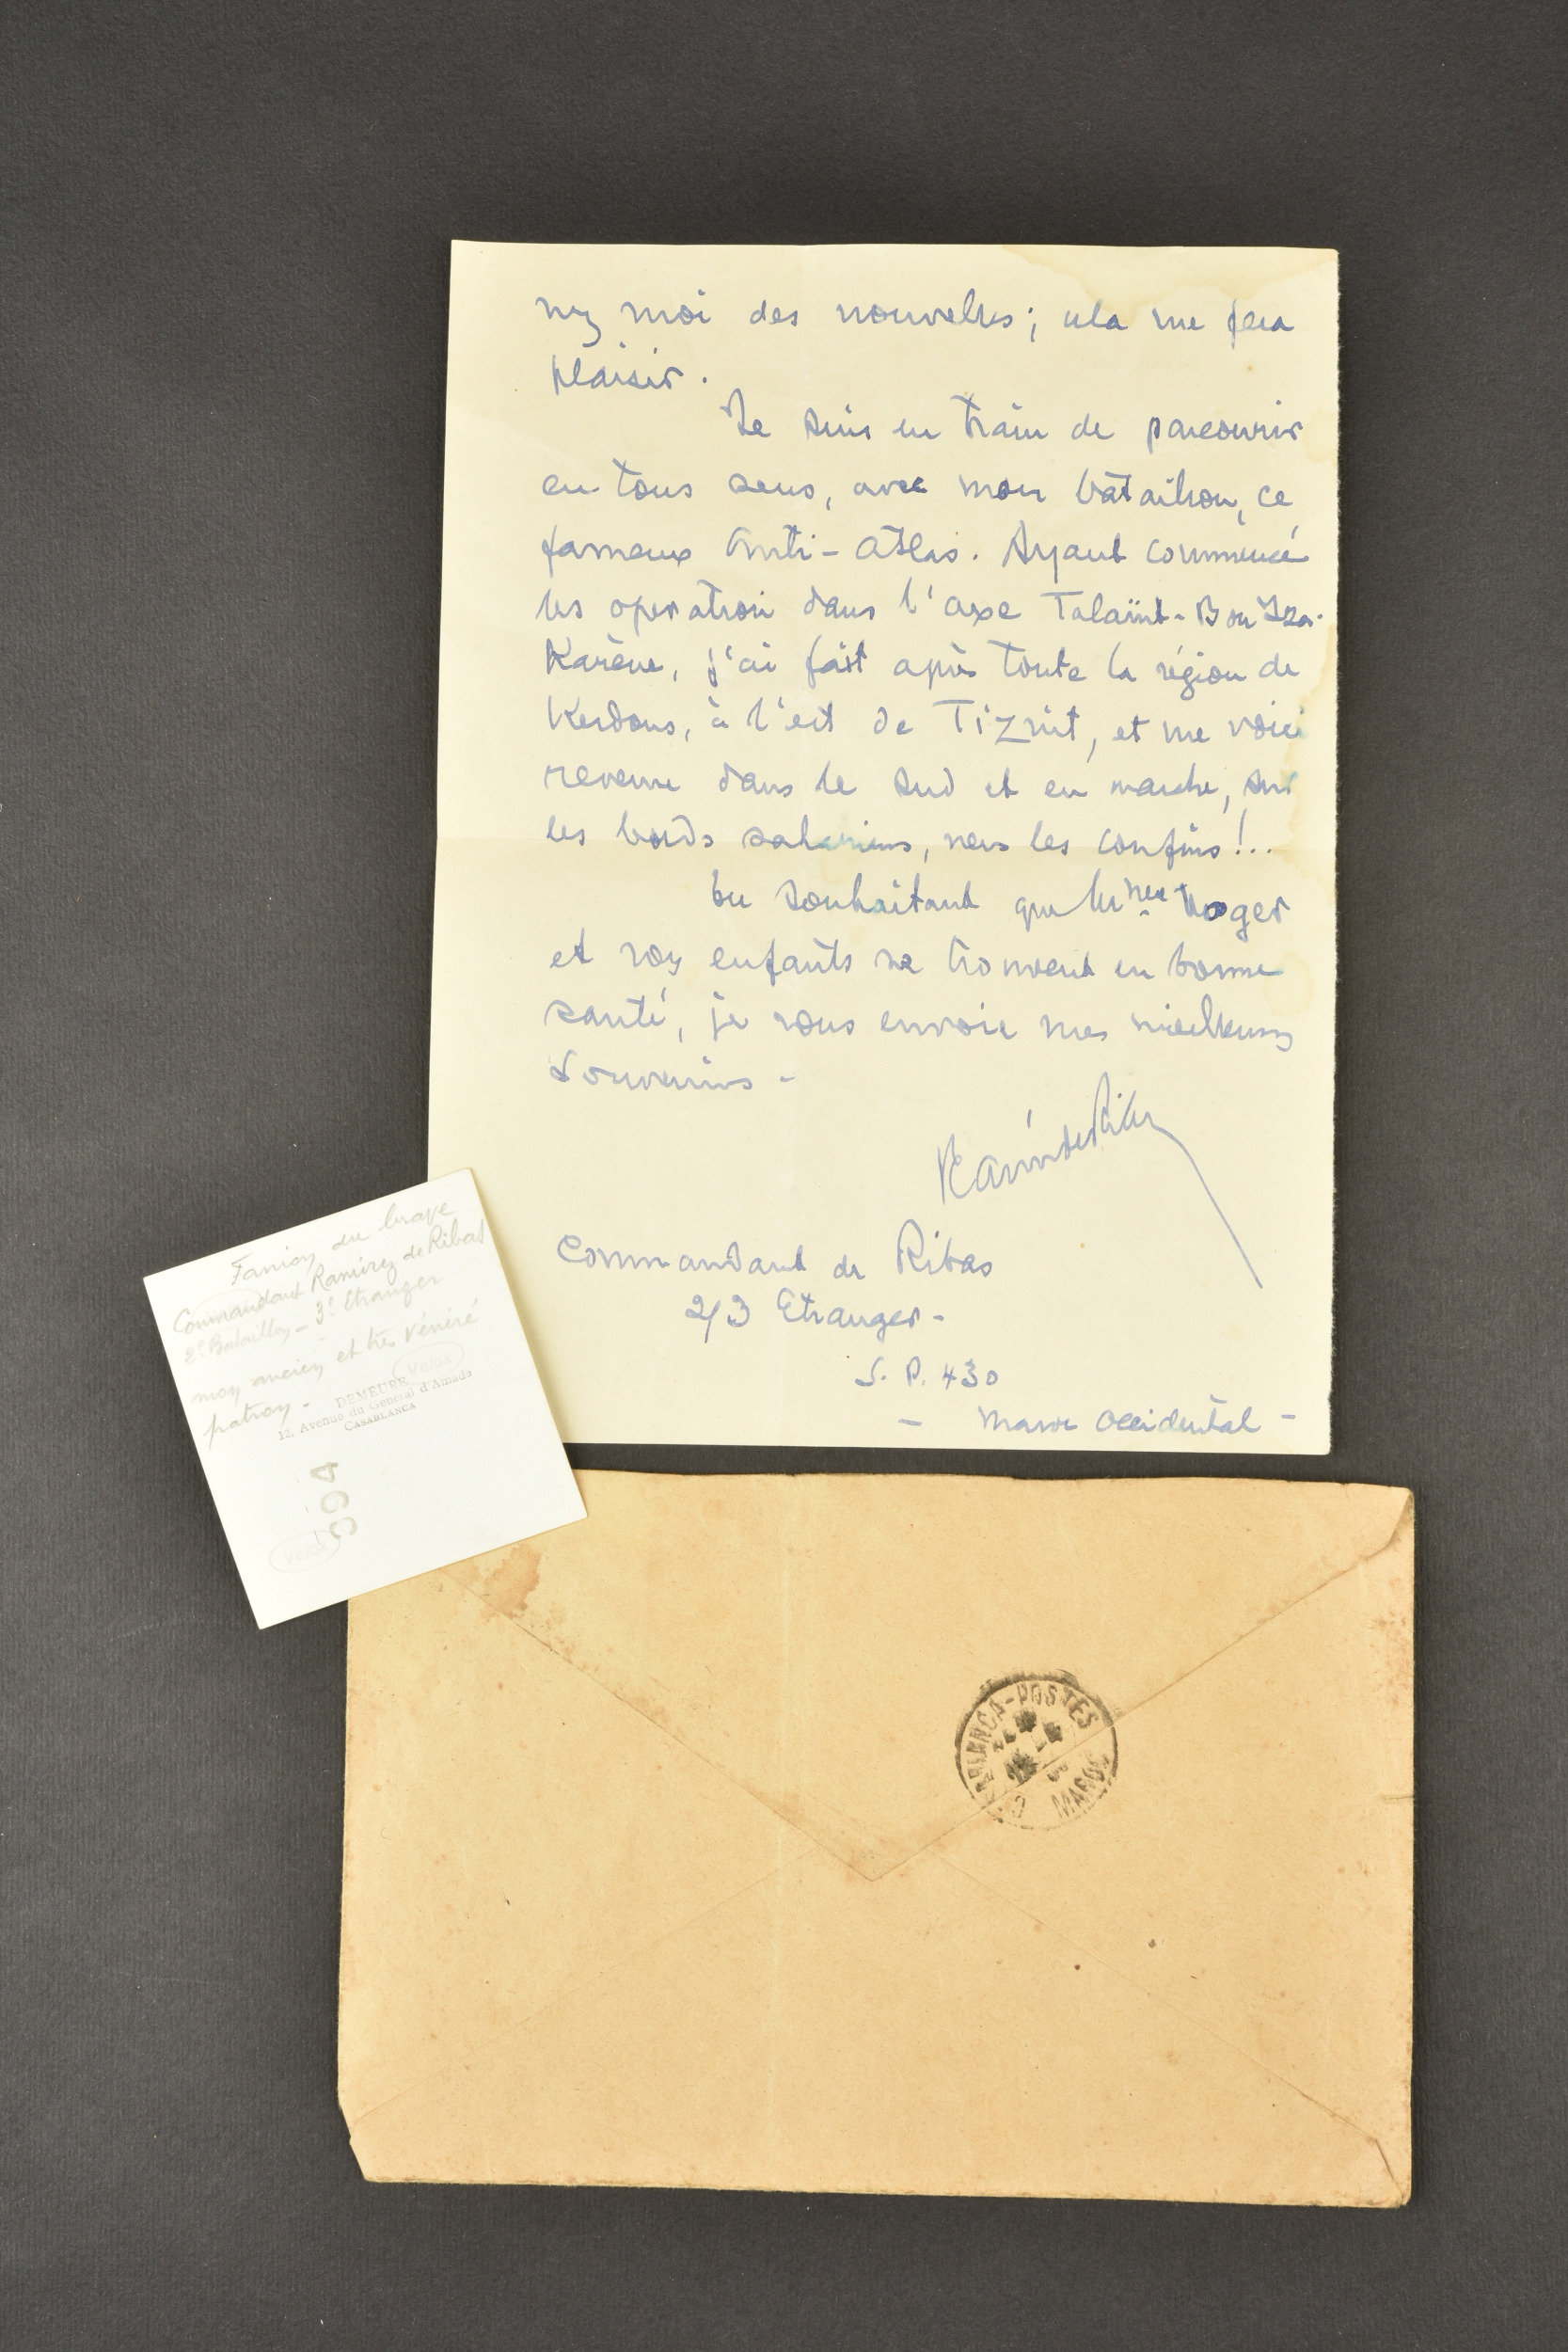 nez moi des nouvelles; cela me fera
plaisir.
Je suis en train de parcourir
en tous sens, avec mon bataillon, ce
fameux Anti-Atlas. Ayant commencé
les operation dans l'axe Talaïnt-Bou Iza-
Karène, j'ai fait après toute la région de
Kerdous, à l'est de Tiznit, et me voici
revenu dans le sud et en marche, sur
les bords sahariens, vers les confins!..
En souhaitant que Mme Noger
et vos enfants se trouvent en bonne
santé, je vous envoie mes meilleurs
Souvenirs -
Commandant de Ribas
2/3 Etranger -
S. P. 430
- Maroc Occidental -
Fanion du brave
Commandant Ramirez de Ribas
2e Bataillon - 3e Etranger
mon ancien et très vénéré
patron -
Velox
DEMEURE
12, Avenue du Général d'Amade
CASABLANCA
Velox
CASABLANCA-POSTES
MAROC